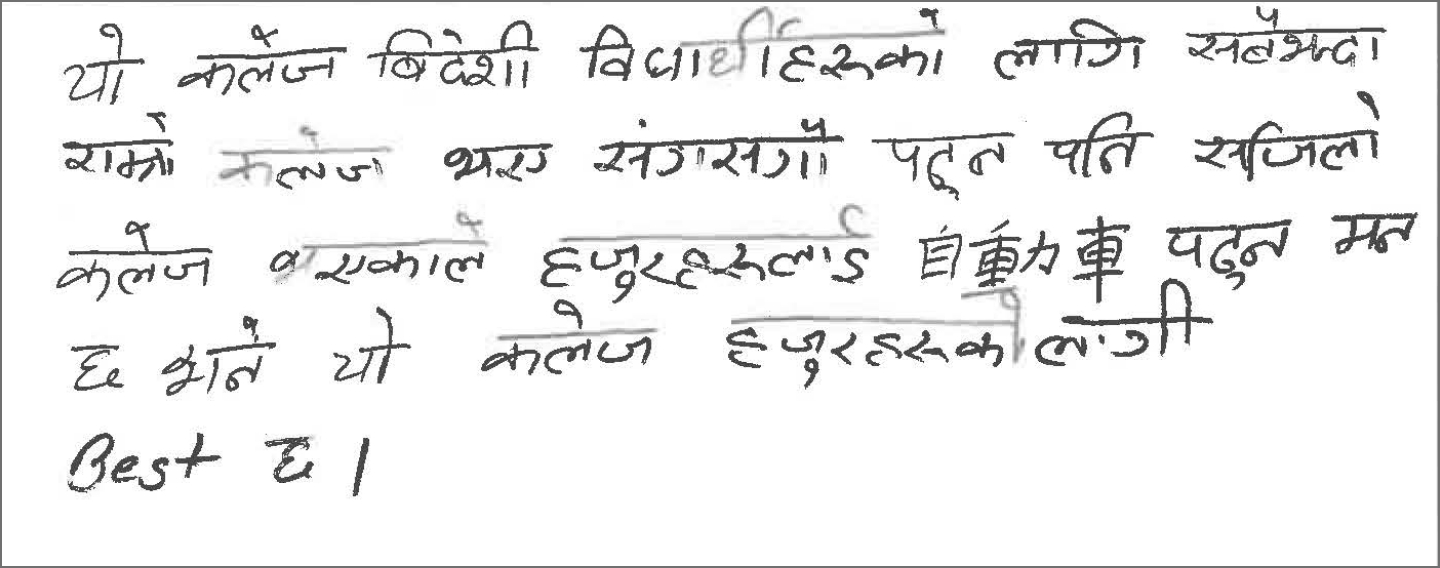 यो कलेज बिदेशी विधार्थीहरुको लागि सबैभन्दा
राम्रो कलेज भए संगसगौ पढ्न पनि सजिलो
कलेज भएकाले हजुरहरुलाई पढ्न मन
छ भने यो कलेज हजुरहरुको लागी
Best छ।